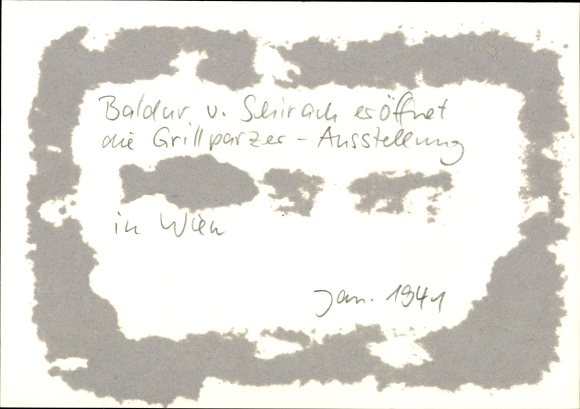 Baldur v. Schirach eröffnet
die Grillparzer-Ausstellung
in Wien
Jan. 1941